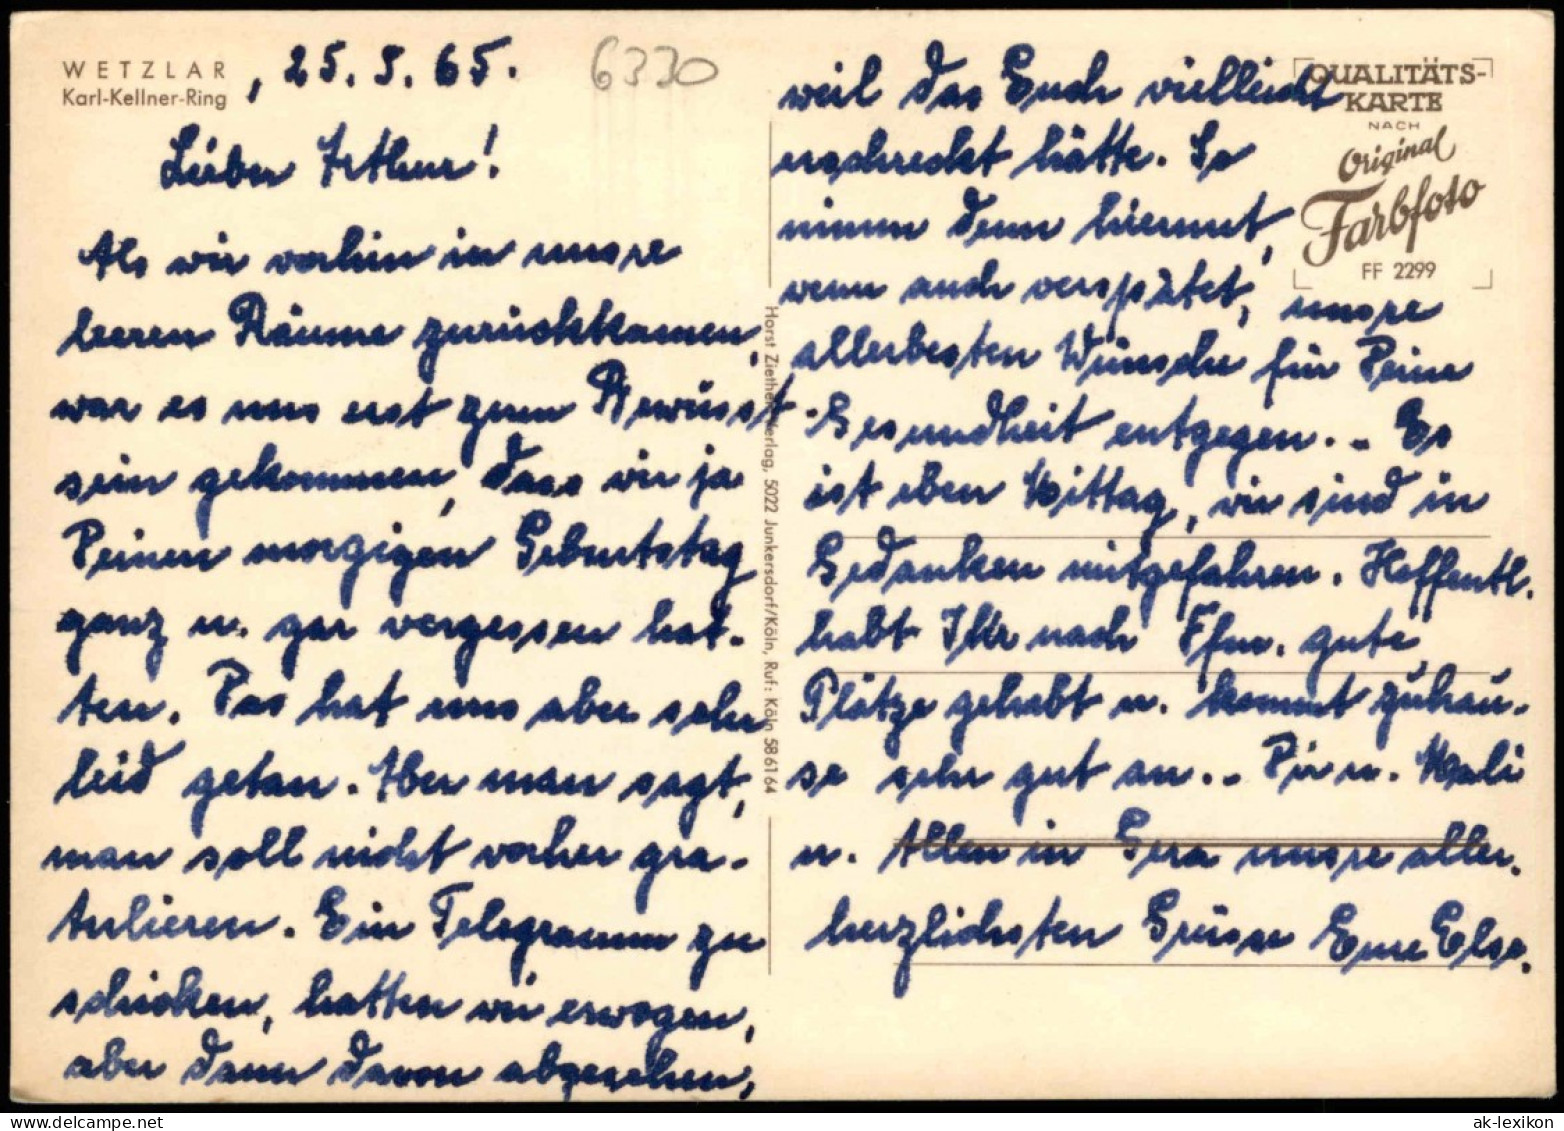 WETZLAR
Karl-Kellner-Ring
, 25. 5. 65.
6330
Lieber Arthur!
Als wir vorhin in unsre
leeren Räume zurückkamen,
war es uns erst zum Bewüsst-
sein gekommen, dass wir ja
Deinen morgigen Geburtstag
ganz u. gar vergessen hat-
ten. Das hat uns aber sehr
leid getan. Aber man sagt,
man soll nicht vorher gra-
tulieren. Ein Telegramm zu
schicken, hatten wir erwogen,
aber dann davon abgesehen,
Horst Ziethen Verlag, 5022 Junkersdorf/Köln, Ruf: Köln 58 61 64
weil das Euch vielleicht
erschreckt hätte. So
nimm denn hiermit,
wenn auch verspätet, unsre
allerbesten Wünsche für Deine
Gesundheit entgegen. - Es
ist eben Mittag, wir sind in
Gedanken mitgefahren. Hoffentl.
habt Ihr nach Ffm. gute
Plätze gehabt u. kommt zuhau-
se sehr gut an. - Dir u. Mali
u. Allen in Gera unsre aller-
herzlichsten Grüsse Eure Else.
QUALITÄTS-
KARTE
NACH
Original
Farbfoto
FF 2299
ak-lexikon